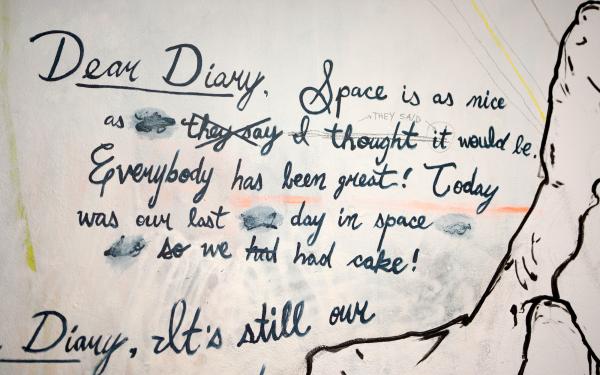 Dear Diary, Space is as nice
THEY SAID
as they say I thought it would be.
Everybody has been great! Today
was our last day in space
so we had cake!
Diary, It's still our